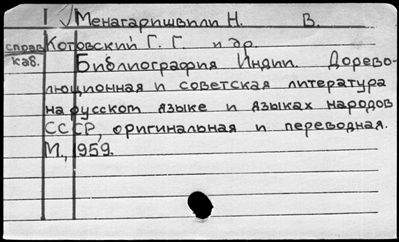 I √ Менагаришвили Н. В.
справ. Котовский Г. Г. и др.
каб. Библиография Индии. Дорево-
люционная и советская литература
на русском языке и языках народов
СССР, оригинальная и переводная.
М., 1959.